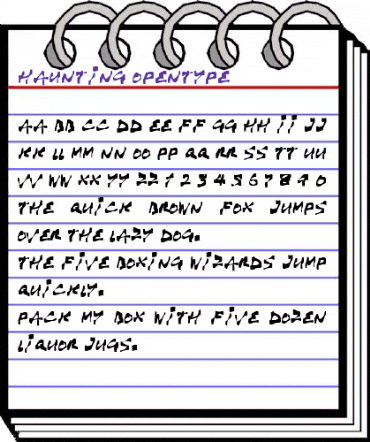 HAUNTING OPENTYPE
AA BB CC DD EE FF GG HH II JJ
KK LL MM NN OO PP QQ RR SS TT UU
VV WW XX YY ZZ 1 2 3 4 5 6 7 8 9 0
THE QUICK BROWN FOX JUMPS
OVER THE LAZY DOG.
THE FIVE BOXING WIZARDS JUMP
QUICKLY.
PACK MY BOX WITH FIVE DOZEN
LIQUOR JUGS.